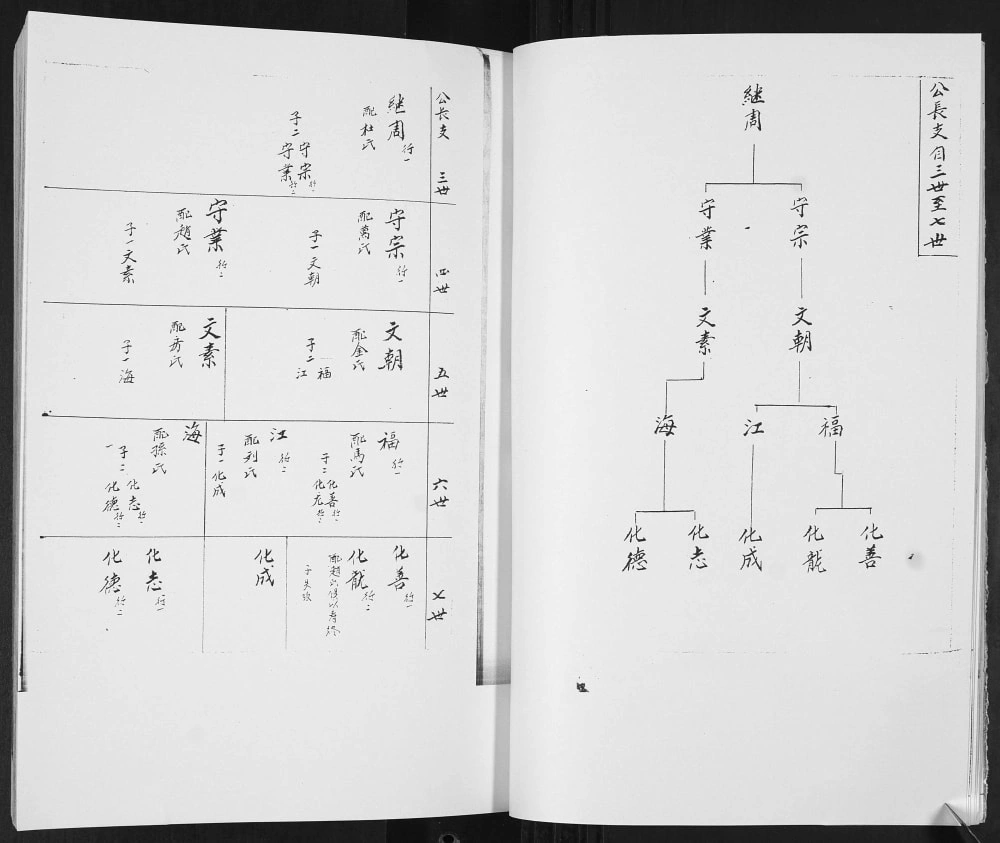 公長支自三世至七世
継周
守宗
守業
文朝
文素
福
江
海
化善
化龍
化成
化志
化德
公長支 三世
継周 行一
配杜氏
子二 守宗 行一
守業 行二
四世
守宗 行一
配萬氏
子一 文朝
守業 行二
配趙氏
子一 文素
五世
文朝
配金氏
子二 福
江
文素
配 氏
子一 海
六世
福 行一
配馬氏
子二 化善 行一
化龙 行二
江 行二
配刘氏
子一 化成
海
配孫氏
子二 化志 行一
化德 行二
七世
化善 行一
化龍 行二
配趙氏 以寿終
子失
化成
化志 行一
化德 行二